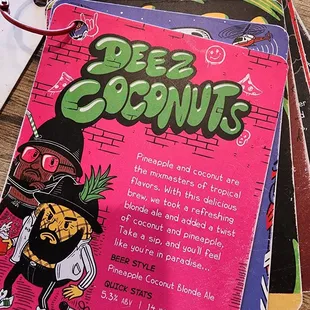 DEEZ
COCONUTS
Pineapple and coconut are
the mixmasters of tropical
flavors. With this delicious
brew, we took a refreshing
blonde ale and added a twist
of coconut and pineapple.
Take a sip, and you'll feel
like you're in paradise...
BEER STYLE
Pineapple Coconut Blonde Ale
QUICK STATS
5.3% ABV |